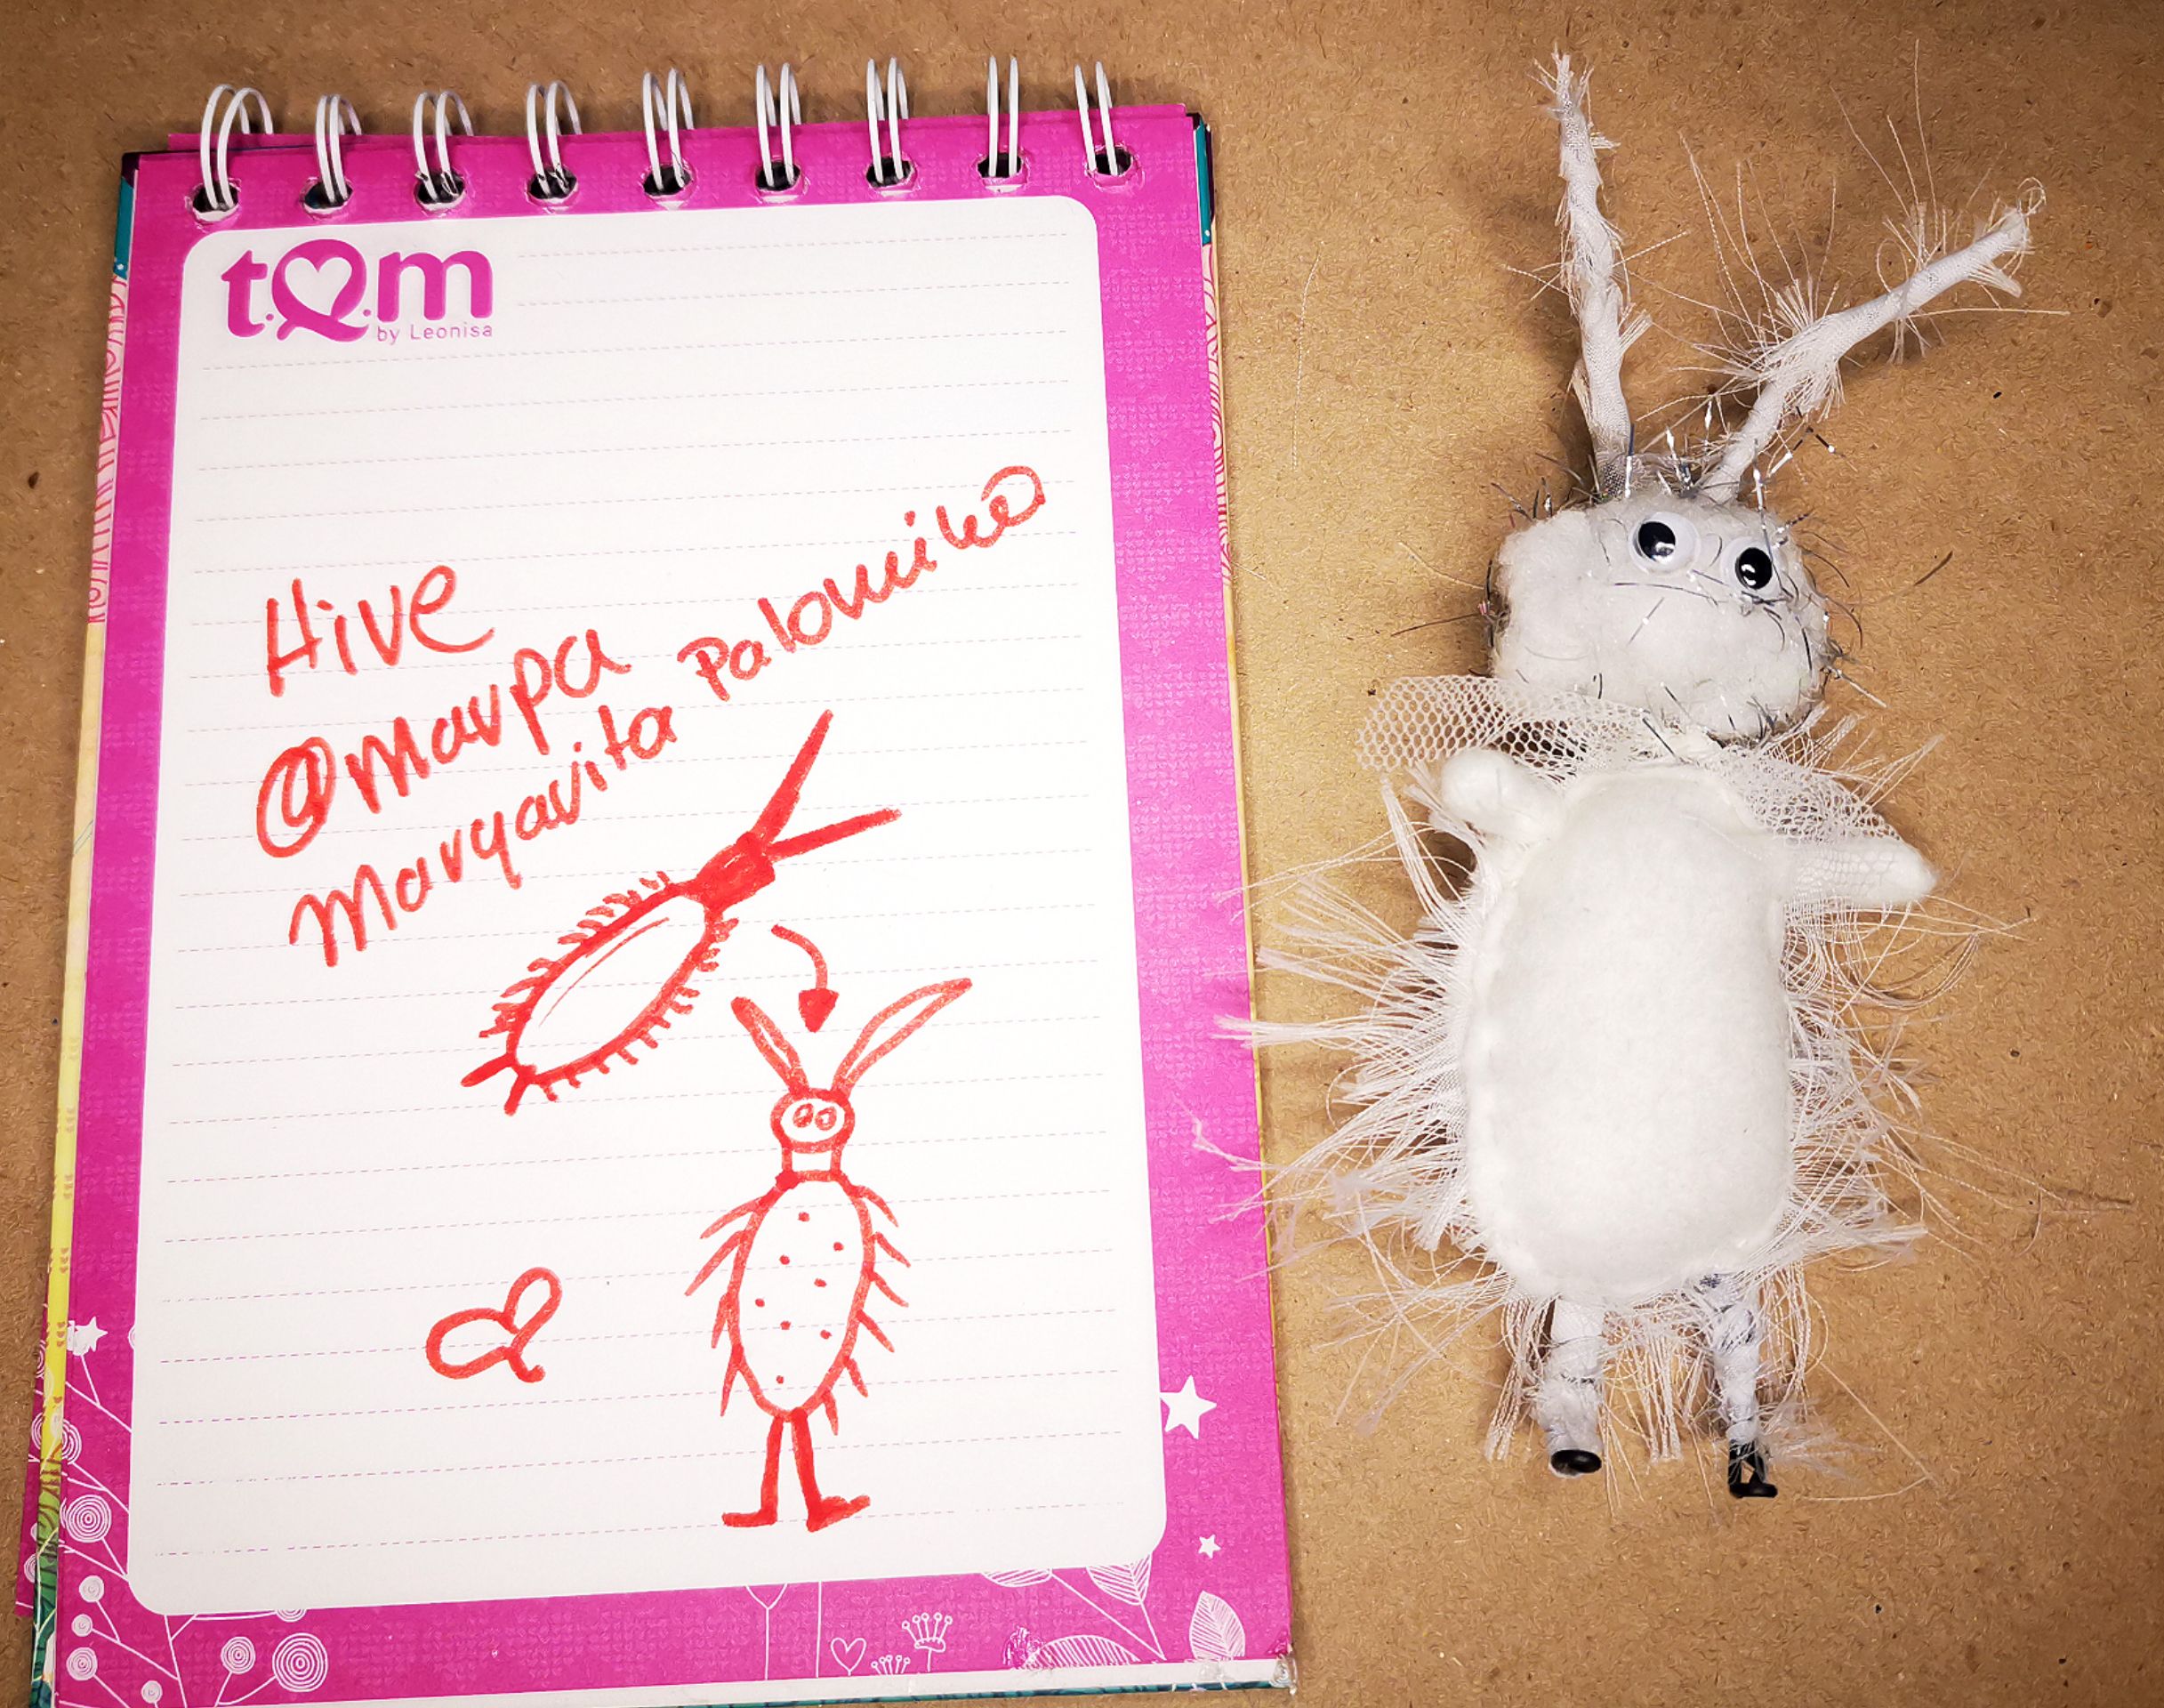 t.Q.m
by Leonisa
Hive
@marpa
Margarita Palomino